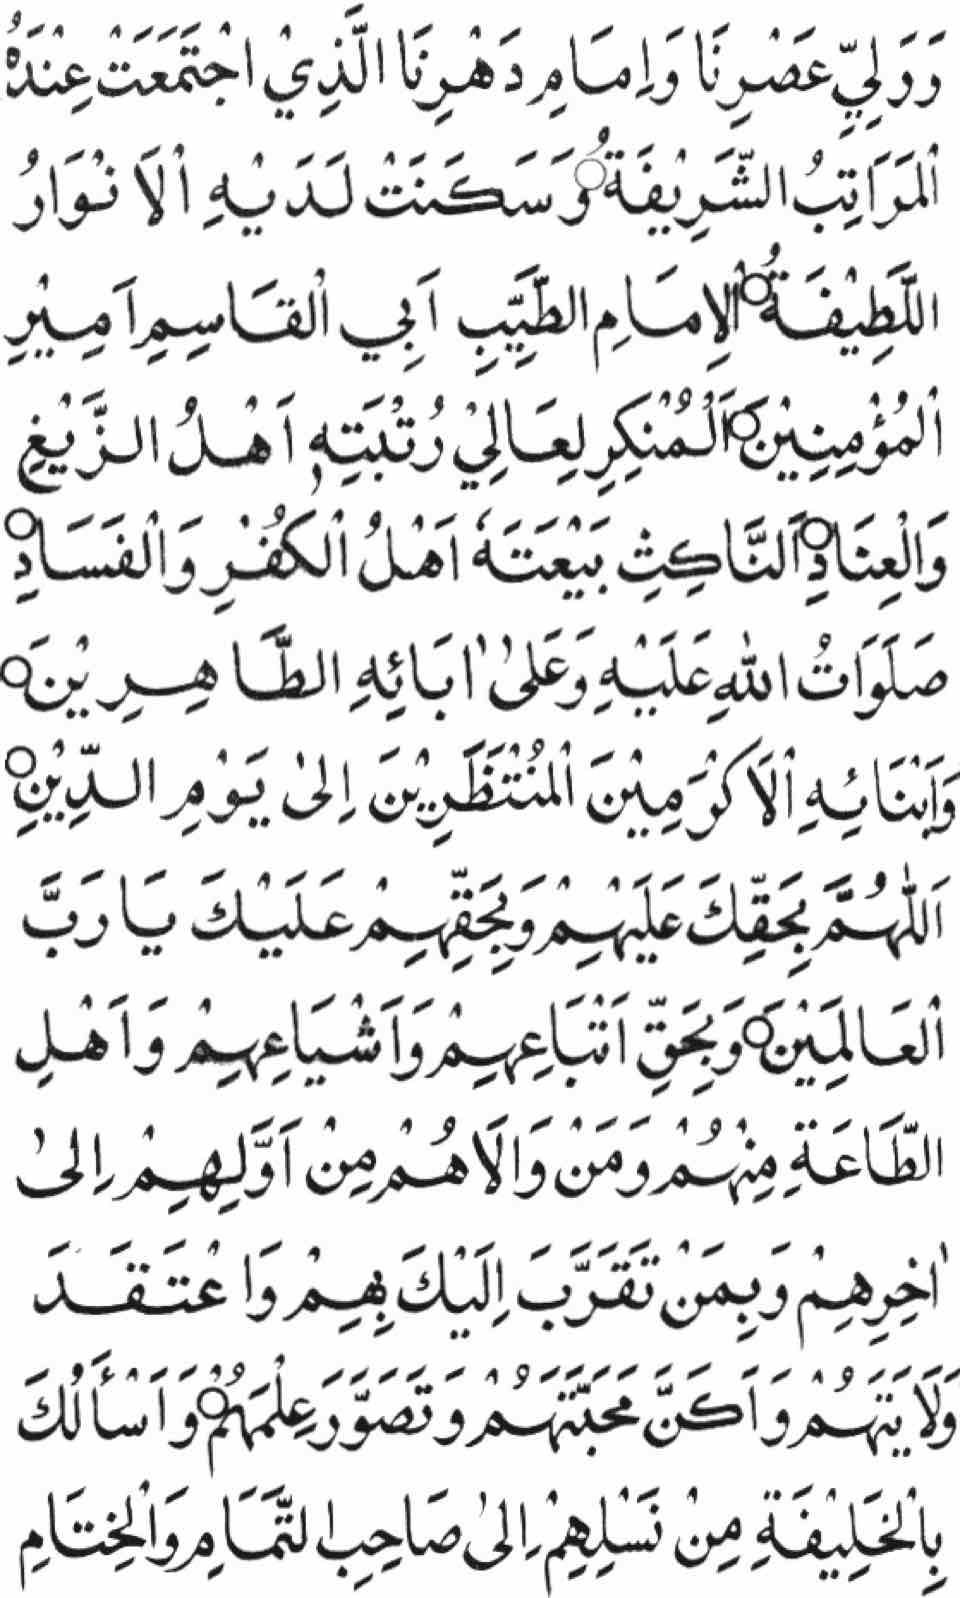 وَوَلِيِّ عَصْرِنَا وَاِمَامِ دَهْرِنَا الَّذِيْ اجْتَمَعَتْ عِنْدَهُ
اْلمَرَاتِبُ الشَّرِيْفَةُ○ وَسَكَنَتْ لَدَيْهِ اْلاَنْوَارُ
اللَّطِيْفَةُ○ اْلاِمَامِ الطَّيِّبِ اَبِي اْلقَاسِمِ اَمِيْرِ
اْلمُؤْمِنِيْنَ○ اَلْمُنْكِرِ لِعَالِيْ رُتْبَتِهِ اَهْلُ الزَّيْغِ
وَالْعِنَادِ○ اَلنَّاكِثِ بَيْعَتَهٗ اَهْلُ اْلكُفْرِ وَاْلفَسَادِ○
صَلَوَاتُ اللهِ عَلَيْهِ وَعَلٰى اٰبَائِهِ الطَّاهِرِيْنَ○
وَاَبْنَائِهِ اْلاَكْرَمِيْنَ اْلمُنْتَظَرِيْنَ اِلٰى يَوْمِ الدِّيْنِ○
اَللّٰهُمَّ بِحَقِّكَ عَلَيْهِمْ وَبِحَقِّهِمْ عَلَيْكَ يَا رَبَّ
اْلعَالَمِيْنَ○ وَبِحَقِّ اَتْبَاعِهِمْ وَاَشْيَاعِهِمْ وَاَهْلِ
الطَّاعَةِ مِنْهُمْ وَمَنْ وَالَاهُمْ مِنْ اَوَّلِهِمْ اِلٰى
اٰخِرِهِمْ وَبِمَنْ تَقَرَّبَ اِلَيْكَ بِهِمْ وَاعْتَقَدَ
وَلَايَتَهُمْ وَاَكَنَّ مَحَبَّتَهُمْ وَتَصَوَّرَ عِلْمَهُمْ○ وَاَسْأَلُكَ
بِاْلخَلِيْفَةِ مِنْ نَسْلِهِمْ اِلٰى صَاحِبِ التَّمَامِ وَاْلخِتَامِ